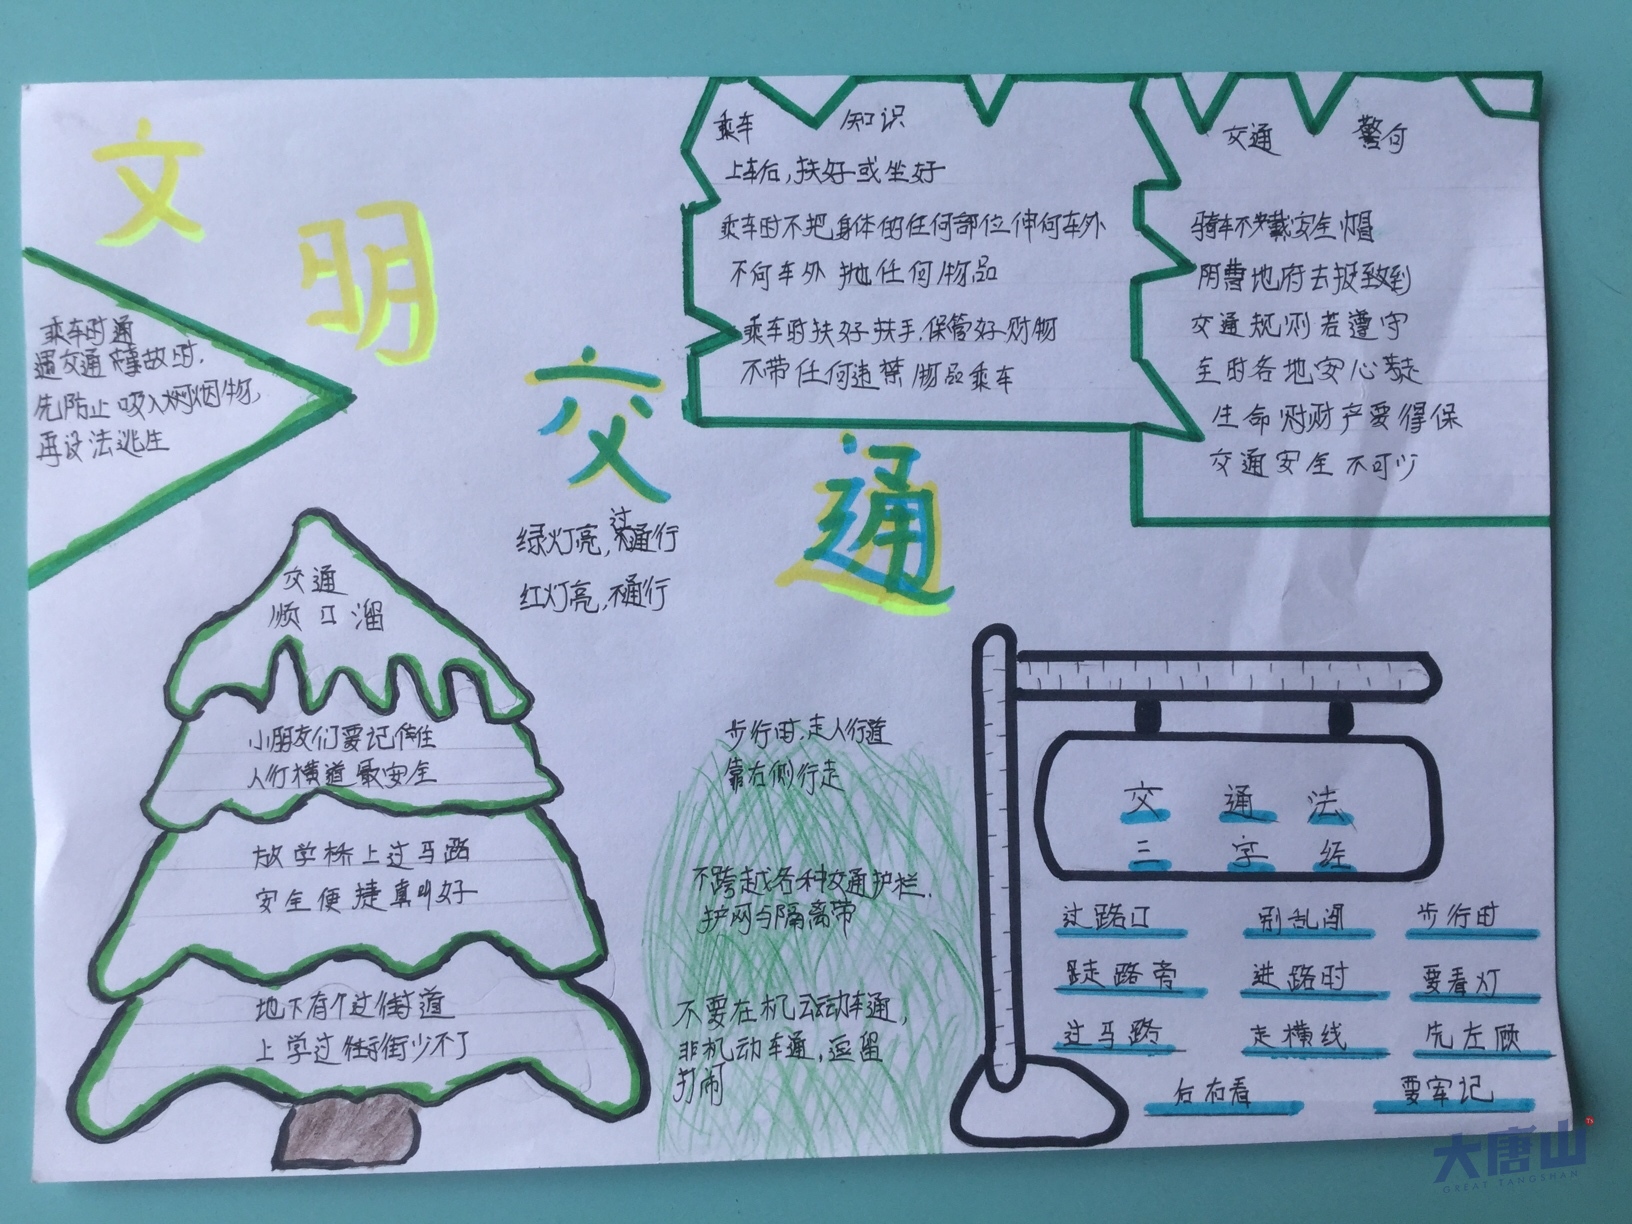 文明交通
乘车时通
遇交通事故时,
先防止吸入烟物,
再设法逃生
乘车 知识
上车后,扶好或坐好
乘车时不把身体的任何部位伸向车外
不向车外抛任何物品
乘车时扶好扶手,保管好财物
不带任何违禁物品乘车
交通 警句
骑车不戴安全帽
阴曹地府去报到
交通规则若遵守
各地安心走
生命财产要得保
交通安全不可少
绿灯亮,过通行
红灯亮,不通行
交通
顺口溜
小朋友们要记住
人行横道最安全
放学桥上过马路
安全便捷真叫好
地下有个过街道
上学过街少不了
步行时,走人行道
靠右侧行走
不跨越各种交通护栏,
护网与隔离带
不要在机动车通,
非机动车通,逗留
打闹
交 通 法
三 字 经
过路口 别乱闯 步行时
走路旁 进路时 要看灯
过马路 走横线 先左顾
后右看 要牢记
大唐山
GREAT TANGSHAN